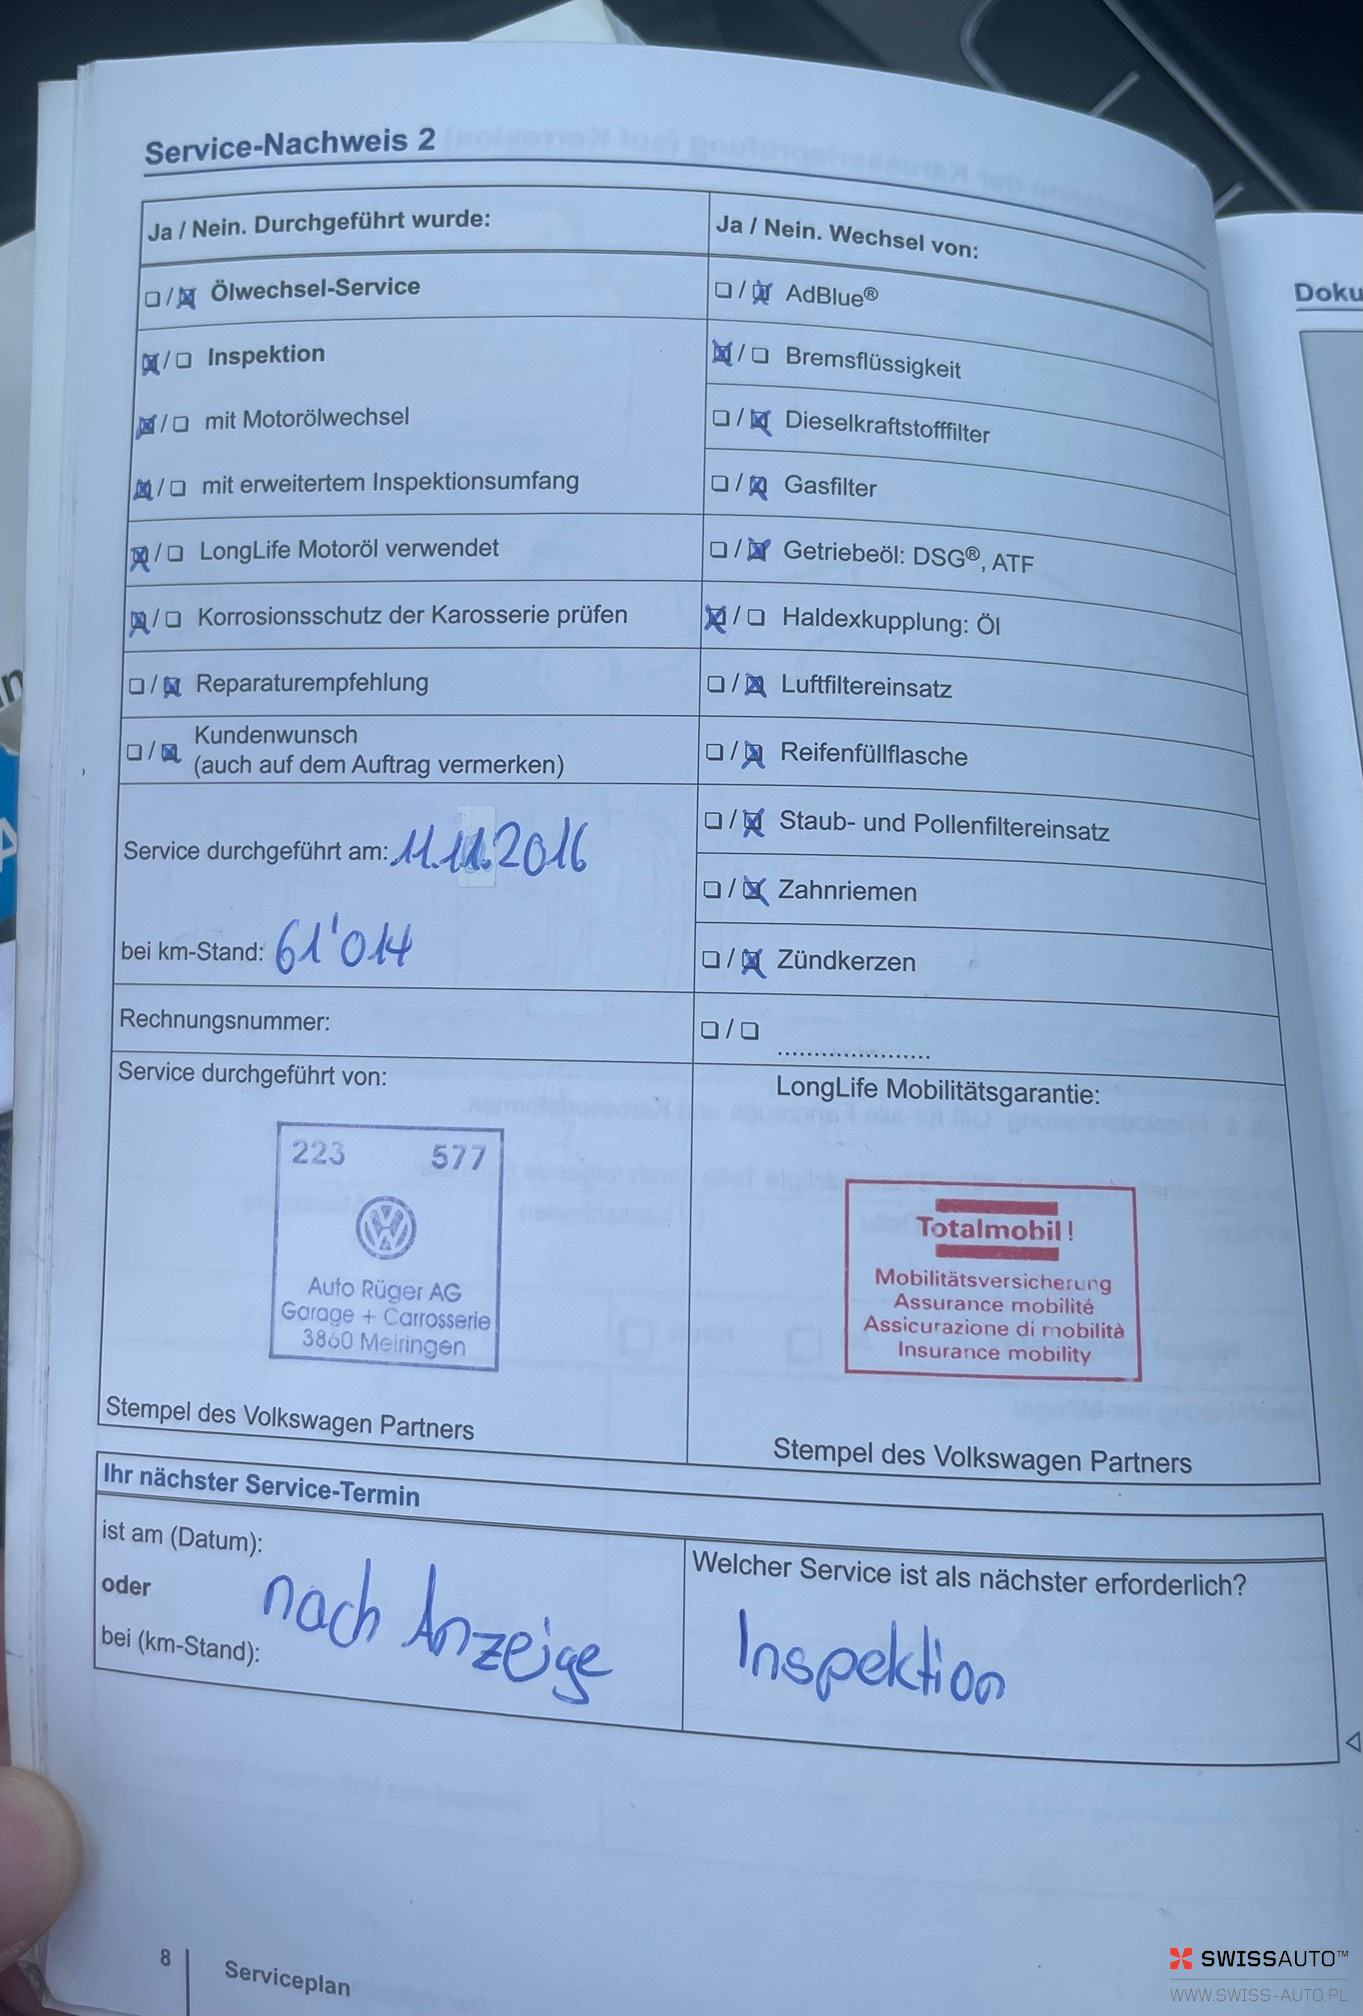 Service-Nachweis 2
Ja / Nein. Durchgeführt wurde:
Ölwechsel-Service
Inspektion
mit Motorölwechsel
mit erweitertem Inspektionsumfang
LongLife Motoröl verwendet
Korrosionsschutz der Karosserie prüfen
Reparaturempfehlung
Kundenwunsch
(auch auf dem Auftrag vermerken)
Service durchgeführt am: 11.11.2016
bei km-Stand: 61'014
Rechnungsnummer:
Service durchgeführt von:
223 577
Auto Rüger AG
Garage + Carrosserie
3860 Meiringen
Stempel des Volkswagen Partners
Ja / Nein. Wechsel von:
AdBlue®
Bremsflüssigkeit
Dieselkraftstofffilter
Gasfilter
Getriebeöl: DSG®, ATF
Haldexkupplung: Öl
Luftfiltereinsatz
Reifenfüllflasche
Staub- und Pollenfiltereinsatz
Zahnriemen
Zündkerzen
LongLife Mobilitätsgarantie:
Totalmobil!
Mobilitätsversicherung
Assurance mobilité
Assicurazione di mobilità
Insurance mobility
Stempel des Volkswagen Partners
Ihr nächster Service-Termin
ist am (Datum):
oder
bei (km-Stand):
nach Anzeige
Welcher Service ist als nächster erforderlich?
Inspektion
8
Serviceplan
Doku
SWISSAUTO™
WWW.SWISS-AUTO.PL